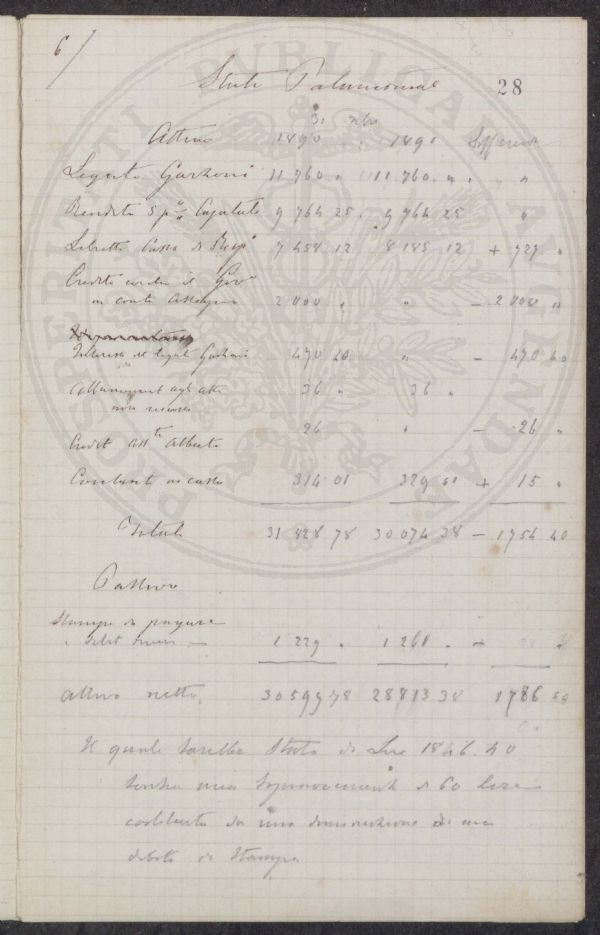 6/
28
Stato Patrimoniale
31 xbre
Attivo 1890 1891 Differenza
Legato Garzoni 11 760 " 11.760 " "
Rendita 5 p% Capitale 9 764 25 9 764 25 "
Libretto Cassa di Risp° 7 458 12 8 185 12 + 727 "
Credito verso il Gov°
in conto assegno 2 000 " " - 2 000 "
Interessi del legato Garzoni 470 40 " - 470 40
Abbonamenti agli atti 36 " 36 "
non riscossi
Crediti Alberto 26 " - 26 "
Contanti in cassa 314 01 329 01 + 15 "
Totale 31 828 78 30 074 38 - 1754 40
Passivo
Stampe da pagare
e debiti diversi 1 229 " 1 261 "
Attivo netto 30 599 78 28 813 38 1786
Il quale sarebbe stato di Lire 1846.40
senza una sopravvenienza di 60 lire
costituita da una diminuzione di un
debito di stampa
PROSPERITATI PUBLICAE AUGENDAE